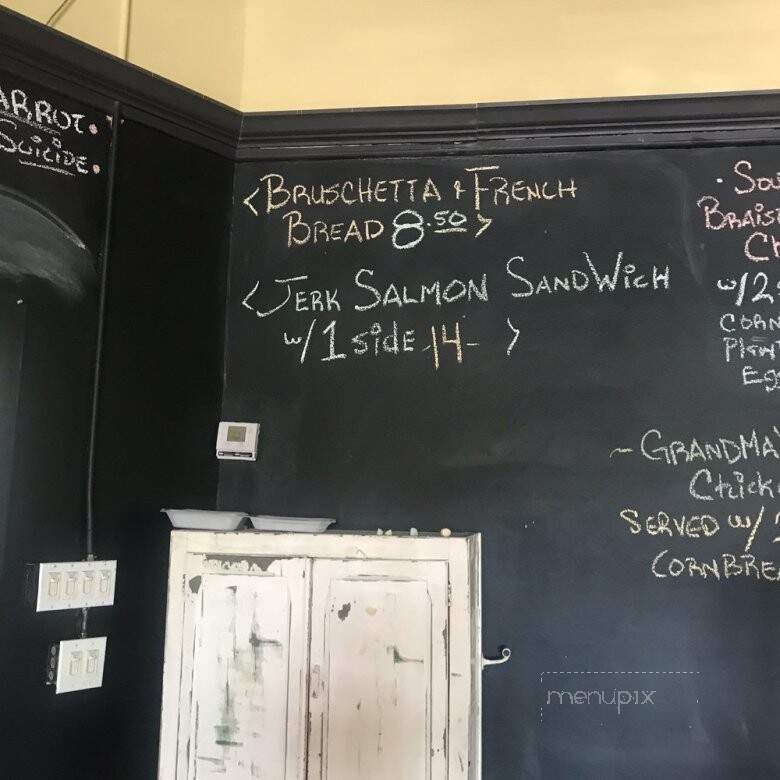 ARROT.
SUICIDE.
<BRUSCHETTA & FRENCH
BREAD 8.50>
<JERK SALMON SANDWICH
w/ 1 SIDE 14- >
· SOU
BRAIS
CH
w/ 2
CORN
EGG
~ GRANDMA'
CHICK
SERVED w/
CORNBREA
menupix